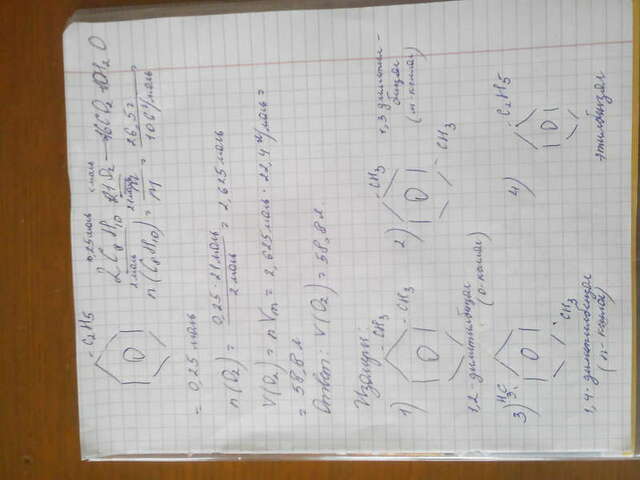 -C2H5
0,25 моль x моль
2C8H10 21O2 — 16CO2 10H2O
2 моль 21 моль
n(C8H10) = m / M = 26,5 г / 106 г/моль
= 0,25 моль
n(O2) = 0,25 · 21 моль / 2 моль = 2,625 моль
V(O2) = n Vm = 2,625 моль · 22,4 л/моль =
= 58,8 л
Ответ: V(O2) = 58,8 л.
Изомеры:
1) CH3 -CH3
1,2-диметилбензол
(о-ксилол)
2) -CH3 -CH3
1,3 диметил-
бензол
(м-ксилол)
3) H3C CH3
1,4-диметилбензол
(п-ксилол)
4) -C2H5
этилбензол